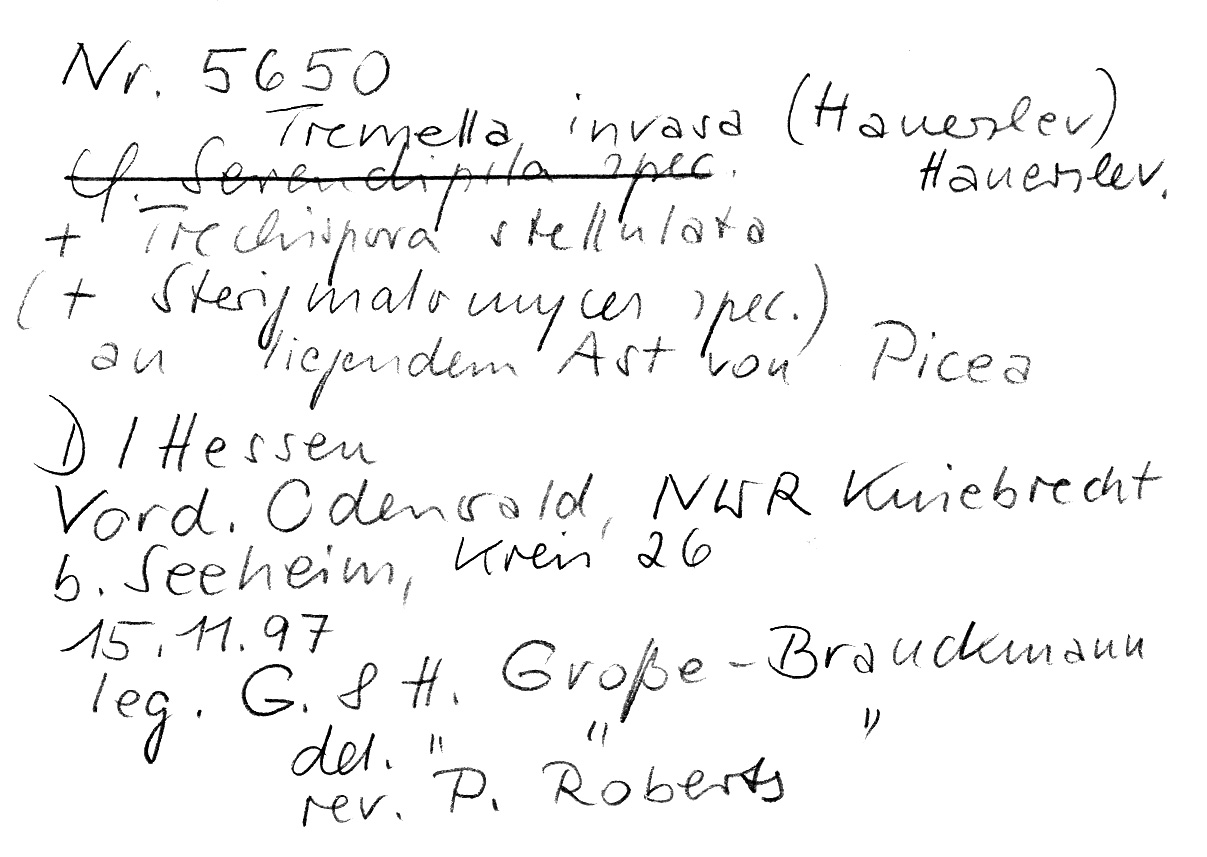 Nr. 5650
Tremella invasa (Hauerslev)
Hauerslev.
Cf. Serendipita spec.
+ Trechispora stellulata
(+ Sterigmatomyces spec.)
an liegendem Ast von Picea
D / Hessen
Vord. Odenwald, NWR Kniebrecht
b. Seeheim, Kreis 26
15.11.97
leg. G. & H. Große-Brauckmann
det. " " "
rev. P. Roberts